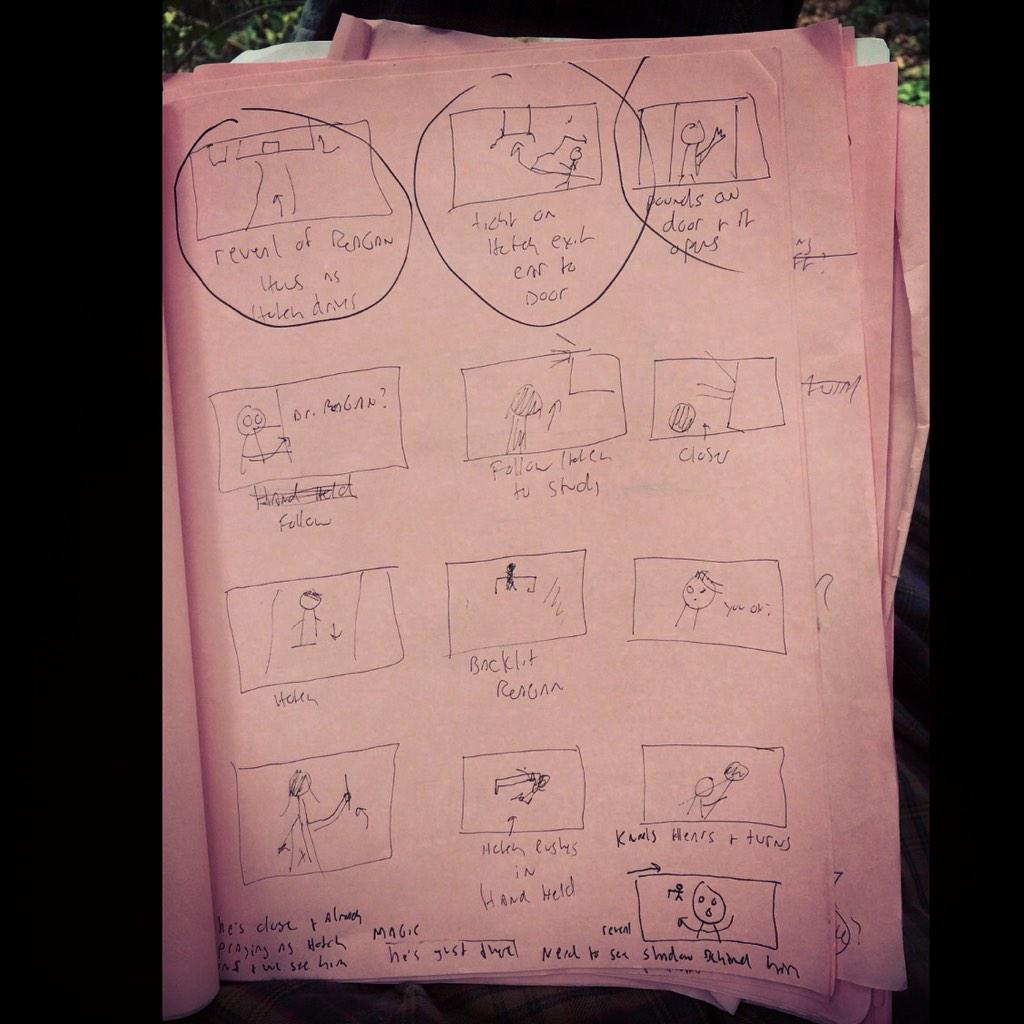 reveal of REAGAN
Hous as
Hotch drives
tight on
Hotch exit
car to
Door
pounds on
door + it
opens
Dr. REAGAN?
Hand Held
Follow
Follow Hotch
to study
Closer
Hotch
Backlit
REAGAN
you ok?
Hotch Pushes
IN
HAND HELD
Kneels Hears + turns
he's close + Already
praying as Hotch
+ we see him
MAGIC
he's just there
reveal
Need to see shadow Behind him